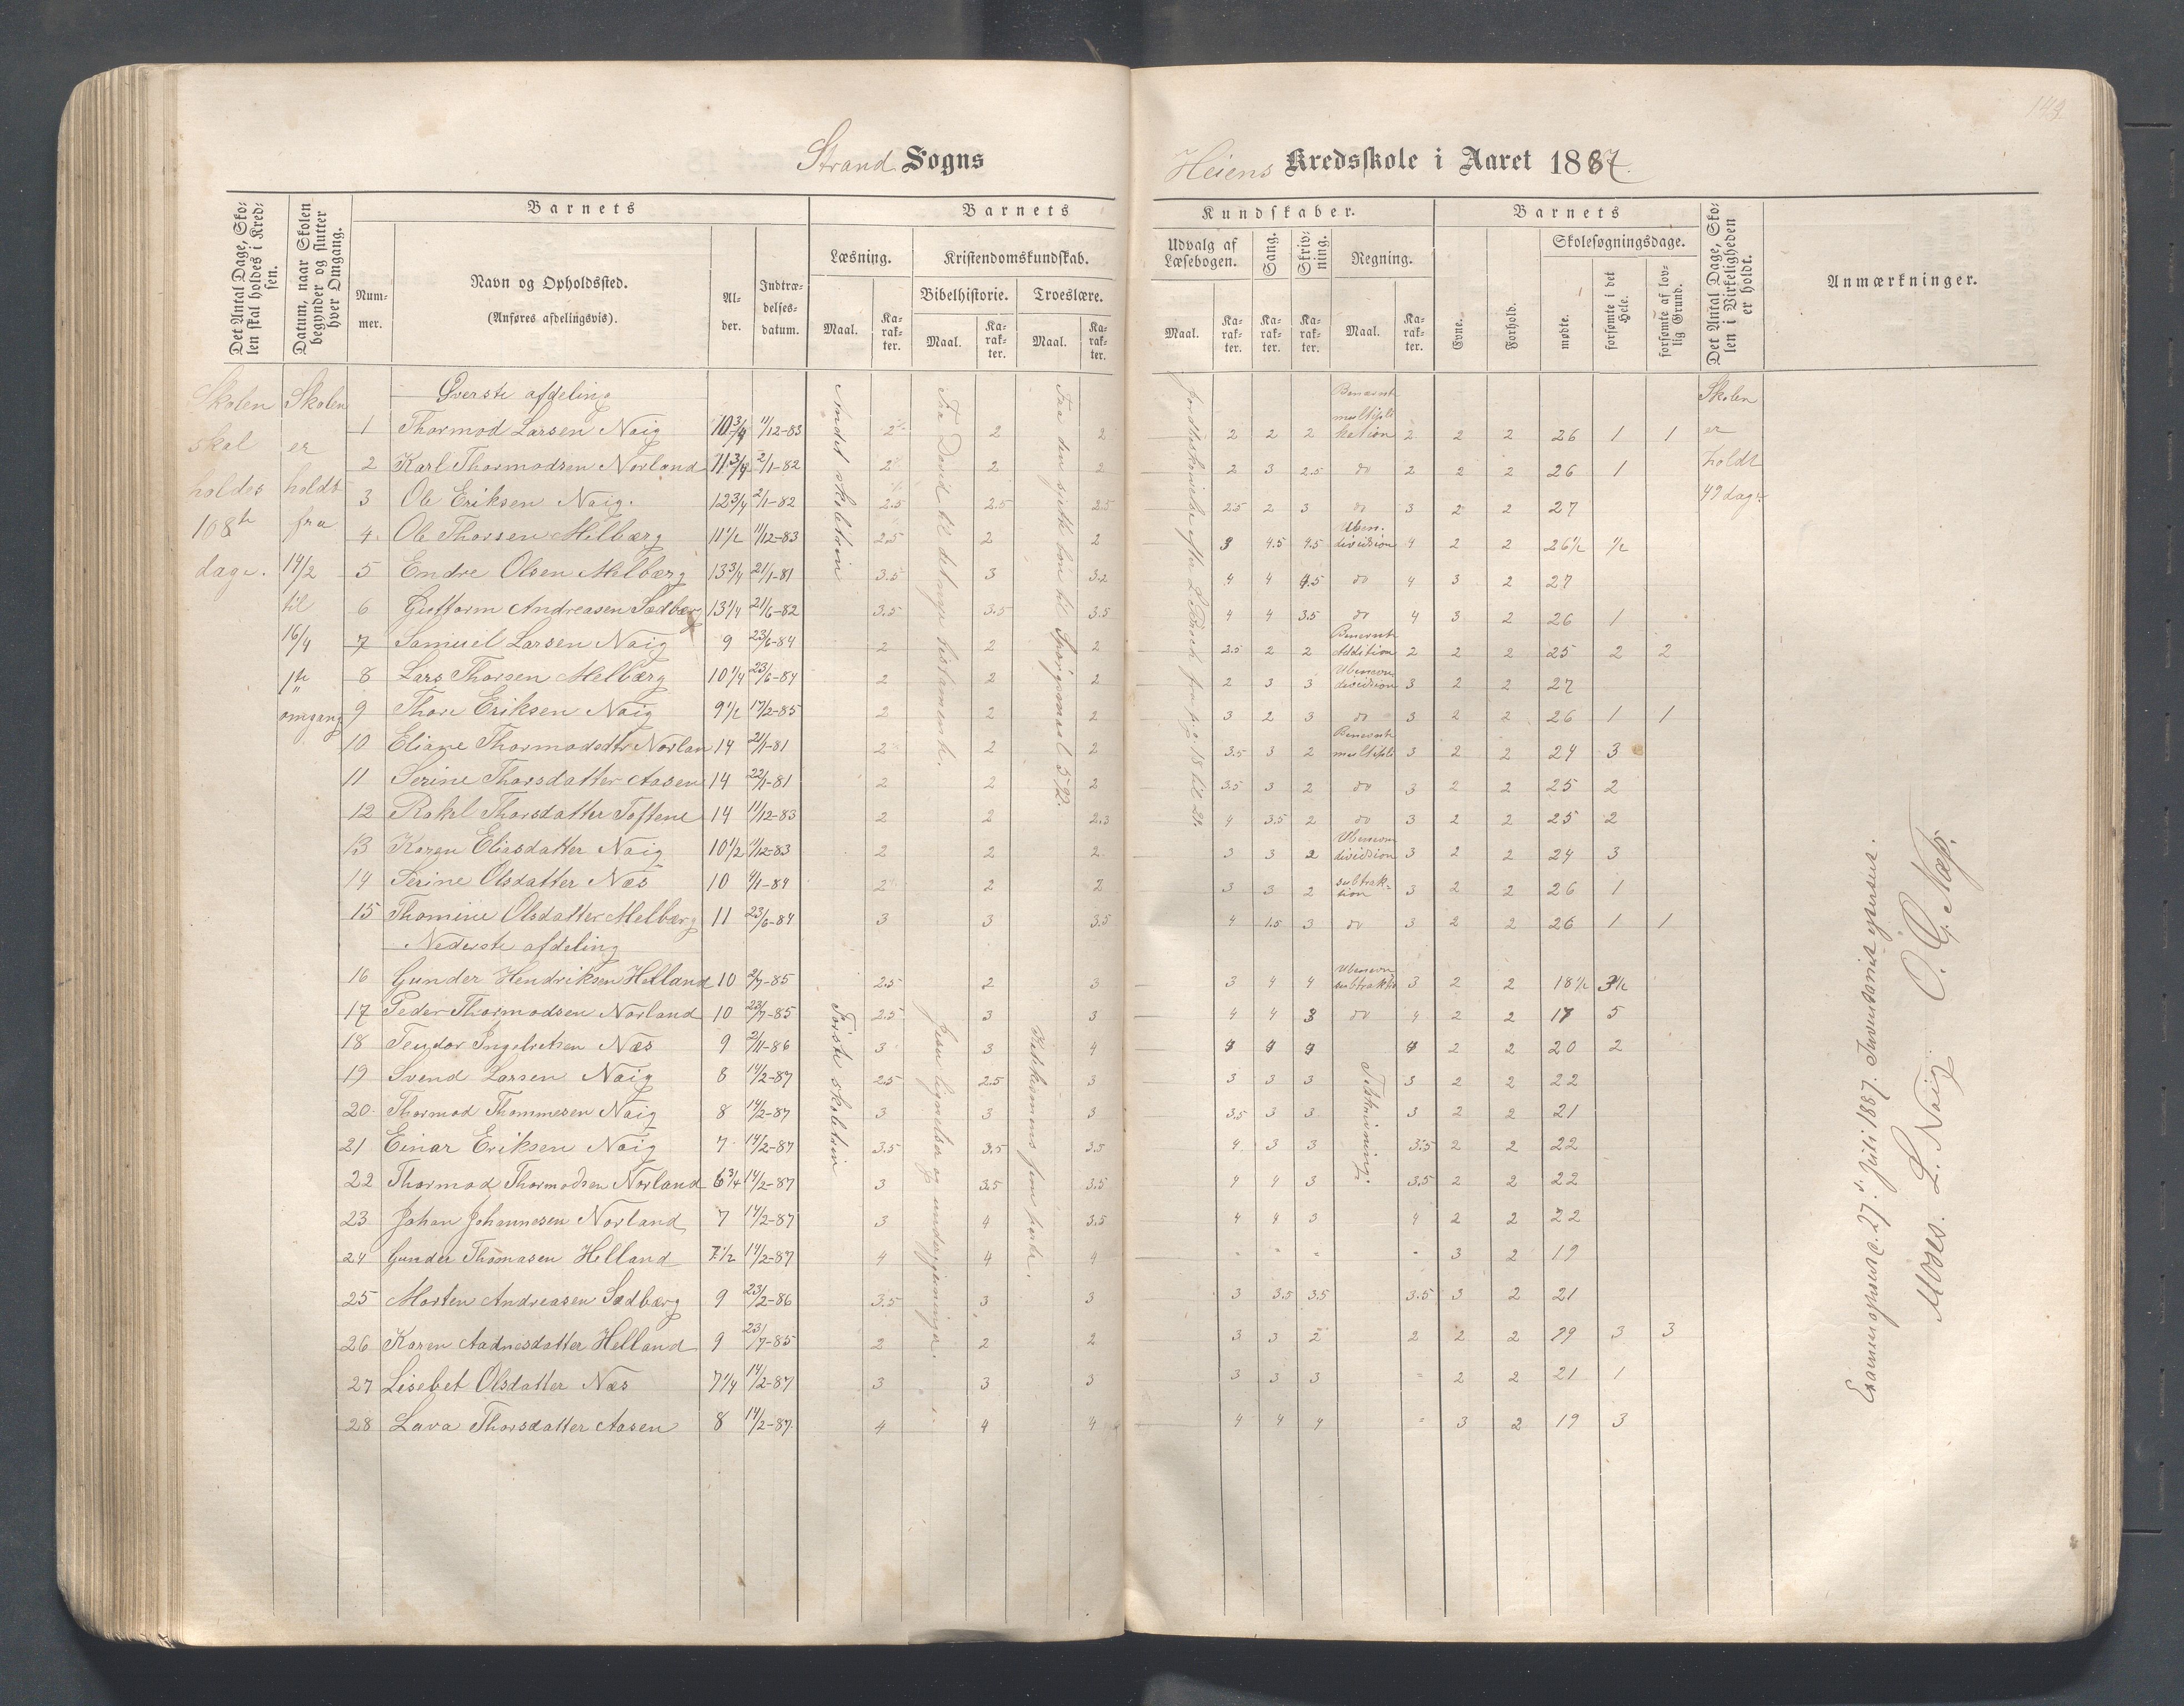 144
Strand Sogns
Heiens Kredsskole i Aaret 1887.
Det Antal Dage, Skolen skal holdes i Kredsen.
Datum, naar Skolen begynder og slutter hver Omgang.
Barnets
Nummer.
Navn og Opholdssted.
(Anføres afdelingsvis).
Alder.
Indtrædelsesdatum.
Barnets
Læsning.
Maal.
Karakter.
Kristendomskundskab.
Bibelhistorie.
Maal.
Karakter.
Troeslære.
Maal.
Karakter.
Kundskaber.
Udvalg af Læsebogen.
Maal.
Karakter.
Sang.
Karakter.
Skrivning.
Karakter.
Regning.
Maal.
Karakter.
Barnets
Evne.
Forhold.
Skolesøgningsdage.
mødte.
forsømte i det Hele.
forsømte af lovlig Grund.
Det Antal Dage, Skolen i Virkeligheden er holdt.
Anmærkninger.
Skolen skal holdes 108 dage.
Skolen er holdt fra 14/2 til 16/4 1ste omgang
Andet skoletrin
Fra David til det nye testamente.
Fra den sidste bøn til Spørgsmaal 592.
Skolen er holdt 49 dage
Øverste afdeling
1 Thormod Larsen Naig 10 3/4 11/12-83 2 2 2 2 2 2 Benævnte multiplikation 2 2 2 26 1 1
2 Karl Thormodsen Norland 11 3/4 2/1-82 2 2 2 2 3 2.5 do 2 2 2 26 1
3 Ole Eriksen Naig. 12 3/4 2/1-82 2.5 2.5 2.5 2.5 2 3 do 3 2 2 27
4. Ole Thorsen Melbærg 11 1/2 11/12-83 2.5 2 2 3 4.5 4.5 Uben. division 4 2 2 26 1/2 1/2
5 Endre Olsen Melbærg 13 3/4 21/1-81 3.5 3 3.2 4 4 4.5 do 4 3 2 27
6 Guttorm Andreasen Sædberg 13 1/4 21/6-82 3.5 3.5 3.5 4 4 3.5 do 4 3 2 26 1
7 Samuel Larsen Naig 9 23/6-84 2 2 2 2.5 2 2 Benævnte Addition 2 2 2 25 2 2
8 Lars Thorsen Melbærg 10 1/4 23/6-84 2 2 2 2 3 3 Ubenævn division 3 2 2 27
9 Thore Eriksen Naig 9 1/2 17/2-85 2 2 2 3 2 3 do 3 2 2 26 1 1
10 Eliane Thormodsdtr Norlan 14 21/1-81 2 2 2 3.5 3 2 Benævnte multipli 3 2 2 24 3
11 Serine Thorsdatter Aasen 14 22/1-81 2 2 2 3.5 3 2 do 3 2 2 25 2
12 Rakel Thorsdatter Toftene 14 11/12-83 2 2 2.3 4 3.5 2 do 3 2 2 25 2
13 Karen Eliasdatter Naig 10 1/2 11/12-83 2 2 2 3 3 2 Ubenævn division 3 2 2 24 3
14 Serine Olsdatter Næs 10 4/1-84 2 2 2 3 3 2 subtraktion 3 2 2 26 1
15 Thomine Olsdatter Melbærg 11 23/6-84 3 3 3.5 4 1.5 3 do 3 2 2 26 1 1
Nederste afdeling
16 Gunder Hendriksen Helland 10 2/7-85 2.5 2 3 3 4 4 Ubenævn subtraktio 3 2 2 18 1/2 3 1/2
17 Peder Thormodsen Norland 10 23/7-85 2.5 3 3 4 4 3 do 4 2 2 17 5
18 Teodor Ingebretsen Næs 9 2/11-86 3 3 4 4 4 4 4 2 2 20 2
19 Svend Larsen Naig 8 14/2-87 2.5 2.5 3 3 3 3 3 2 2 22
20. Thormod Thommesen Naig 8 14/2-87 3 3 3 3.5 3 3 3 2 2 21
21 Einar Eriksen Naig 7 14/2-87 3.5 3.5 3.5 4 3 3 3.5 2 2 22
22 Thormod Thormodsen Norland 6 3/4 14/2-87 3 3.5 3.5 4 4 3 3.5 2 2 22
23 Johan Johannesen Norland 7 14/2-87 3 4 3.5 4 4 3 4 2 2 22
24 Gunder Thomasen Helland 7 1/2 14/2-87 4 4 4 " " " " 3 2 19
25 Morten Andreasen Sædbærg 9 23/2-86 3.5 3 3 3 3.5 3.5 3.5 3 2 21
26 Karen Aadnesdatter Helland 9 23/7-85 2 2 2 3 3 2 2 2 2 29 3 3
27 Lisebet Olsdatter Næs 7 1/4 14/2-87 3 3 3 3 3 3 " 2 2 21 1
28 Lava Thorsdatter Aasen 8 14/2-87. 4 4 4 4 4 4 " 3 2 19 3
Første skoletrin
Jesu lignelser og undergjerninger.
Katekismens fem parter.
Talskrivning.
27. Juli 1887.
Moses. L. Naig. O. G. Næss.